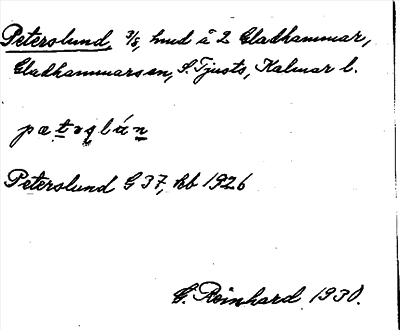 Peterslund, 3/8, hmd å 2 Gladhammar,
Gladhammars sn, S. Tjusts, Kalmar l.
Peterslund G 37, Kb 1926
G. Reinhard 1930.